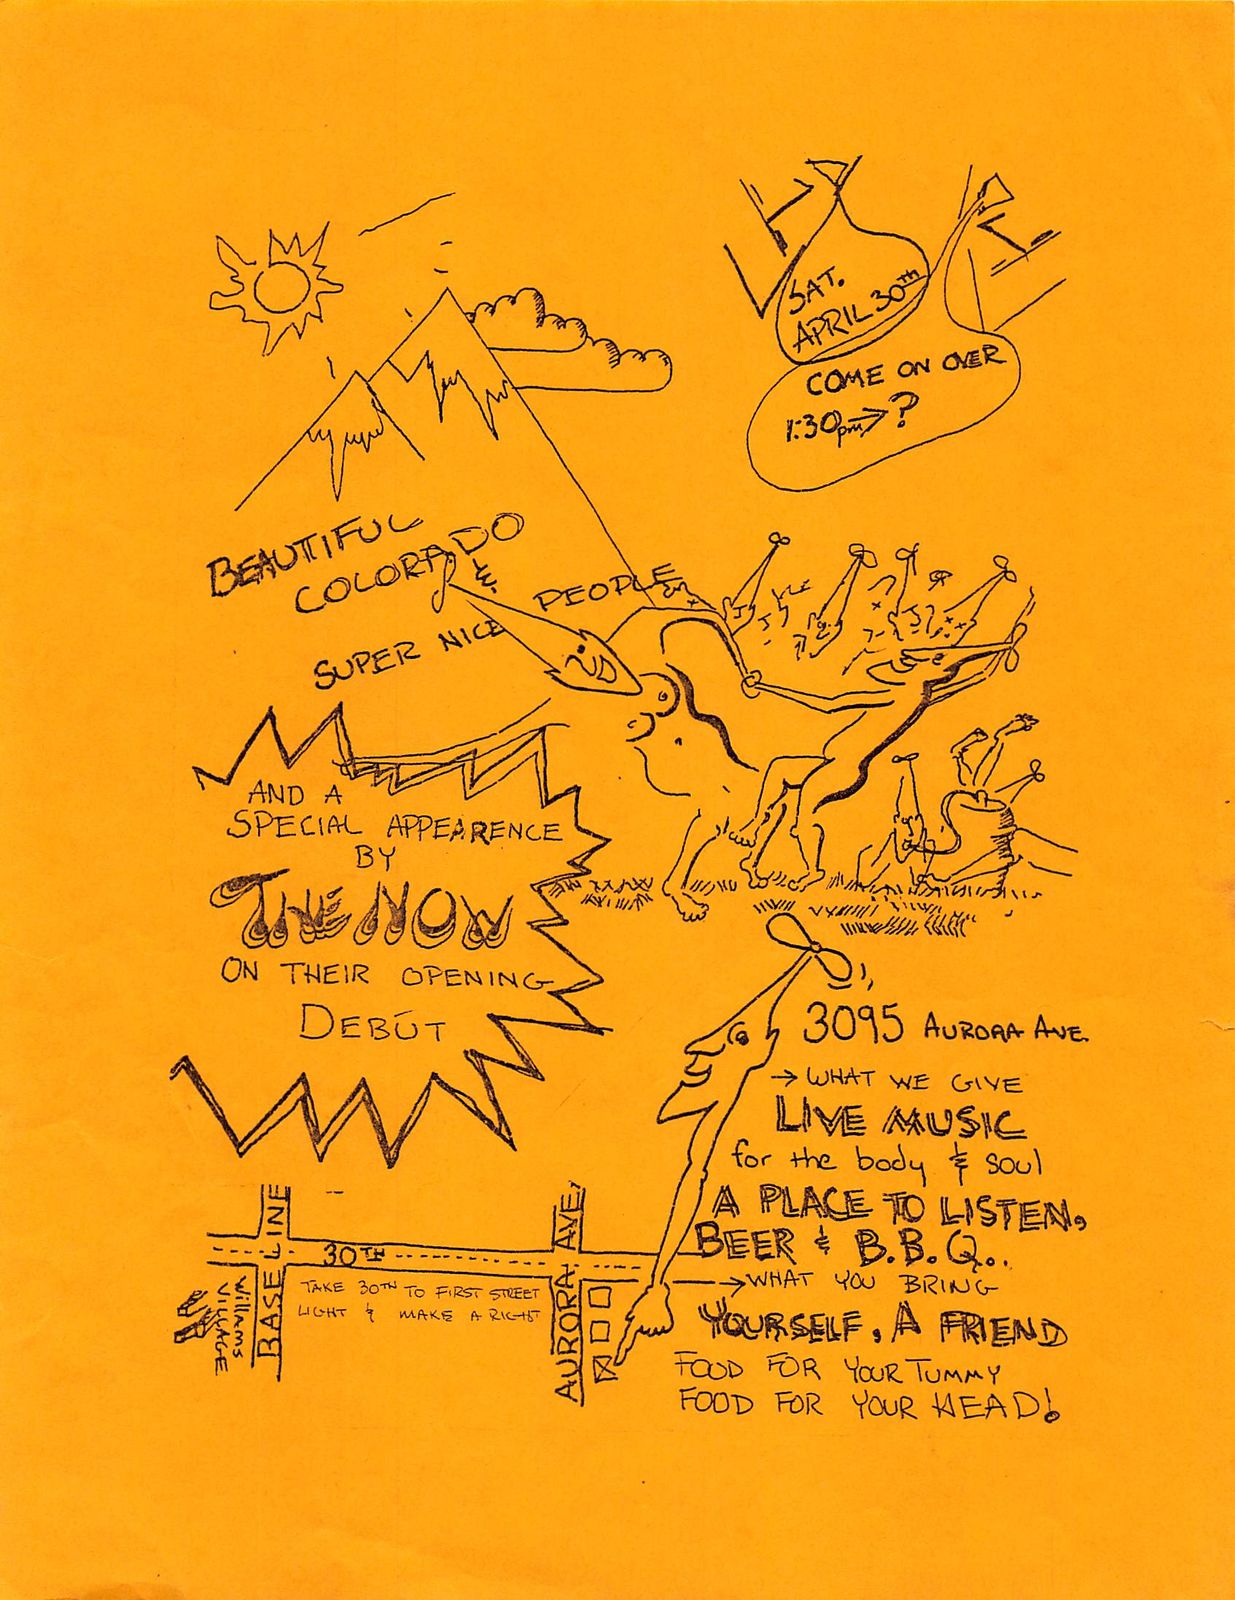 SAT.
APRIL 30TH
COME ON OVER
1:30pm→?
BEAUTIFUL
COLORADO
&
SUPER NICE PEOPLE
AND A
SPECIAL APPEARENCE
BY
THE NOW
ON THEIR OPENING
DEBŪT
3095 AURORA AVE.
→ WHAT WE GIVE
LIVE MUSIC
for the body & soul
A PLACE TO LISTEN,
BEER & B.B.Q..
→ WHAT YOU BRING
YOURSELF, A FRIEND
FOOD FOR YOUR TUMMY
FOOD FOR YOUR HEAD!
BASE LINE
30TH
AURORA AVE,
TAKE 30TH TO FIRST STREET
LIGHT & MAKE A RIGHT
Williams
VILLAGE